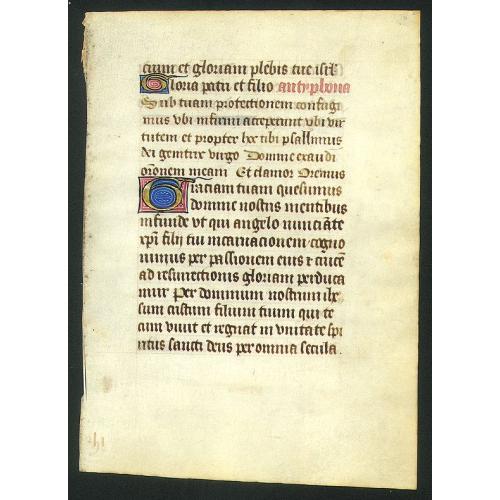 tuam et gloriam plebis tue isrl
Gloria patri et filio antyphona
Sub tuam protectionem confugi
mus vbi infirmi acceperunt vbi vir
tutem et propter hec tibi psallimus
dei genitrix virgo Domine exaudi
orōnem meam Et clamor Oremus
Graciam tuam quesumus
domine nostris mentibus
infunde vt qui angelo nunciāte
xpī filii tui incarnacionem cogno
uimus per passionem eius et crucē
ad resurrectionis gloriam perduca
mur Per dominum nostrum ihe
sum cristum filium tuum qui te
cum viuit et regnat in vnitate spi
ritus sancti deus per omnia secula.